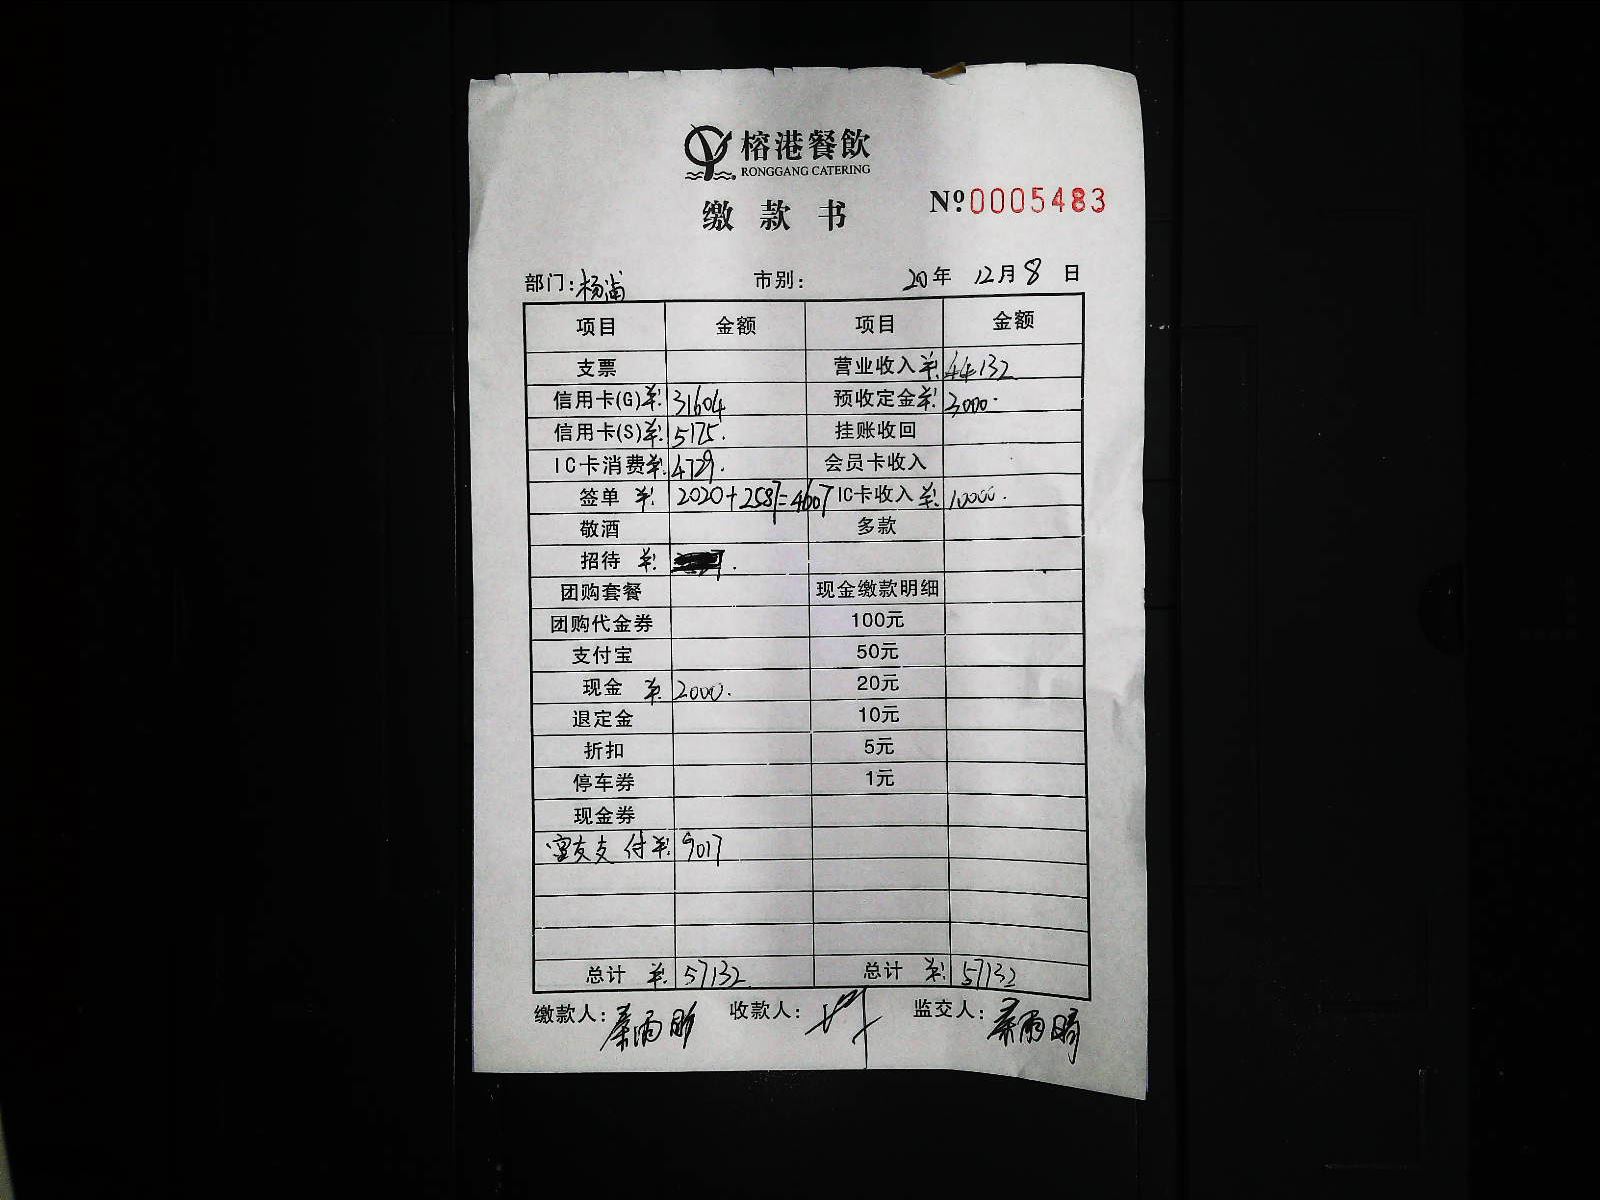 榕港餐飲
RONGGANG CATERING
缴款书
№0005483
部门：杨浦 市别： 20年 12月8日
项目 金额 项目 金额
支票 营业收入 ¥: 44132
信用卡(G) ¥: 31604 预收定金 ¥: 3000.
信用卡(S) ¥: 5175. 挂账收回
IC卡消费 ¥: 4729. 会员卡收入
签单 ¥: 2020+2587=4607 IC卡收入 ¥: 10000.
敬酒 多款
招待 ¥:
团购套餐 现金缴款明细
团购代金券 100元
支付宝 50元
现金 ¥: 2000. 20元
退定金 10元
折扣 5元
停车券 1元
现金券
支付 ¥: 9017
总计 ¥: 57132 总计 ¥: 57132
缴款人： 收款人： 监交人：